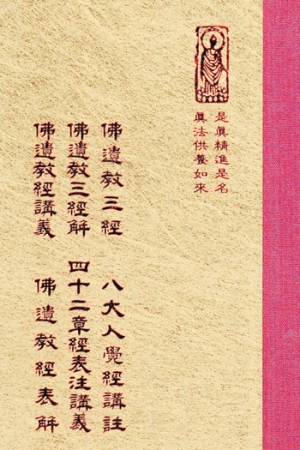 是眞精進是名
眞法供養如來
佛遺教三經
八大人覺經講註
佛遺教三經解
四十二章經表注講義
佛遺教經講義
佛遺教經表解